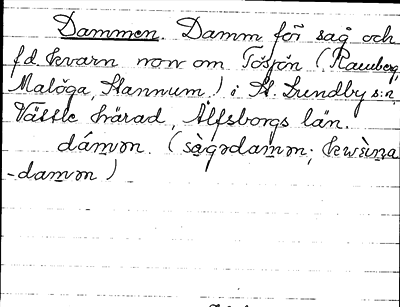 Dammen. Damm för såg och
f.d. kvarn norr om Tösjön (Ramberg,
Malöga, Stannum) i St. Lundby s:n,
Vättle härad, Älfsborgs län.
dámən. (sàgədam̱ən; kwὲṉa
-dam̱ən)